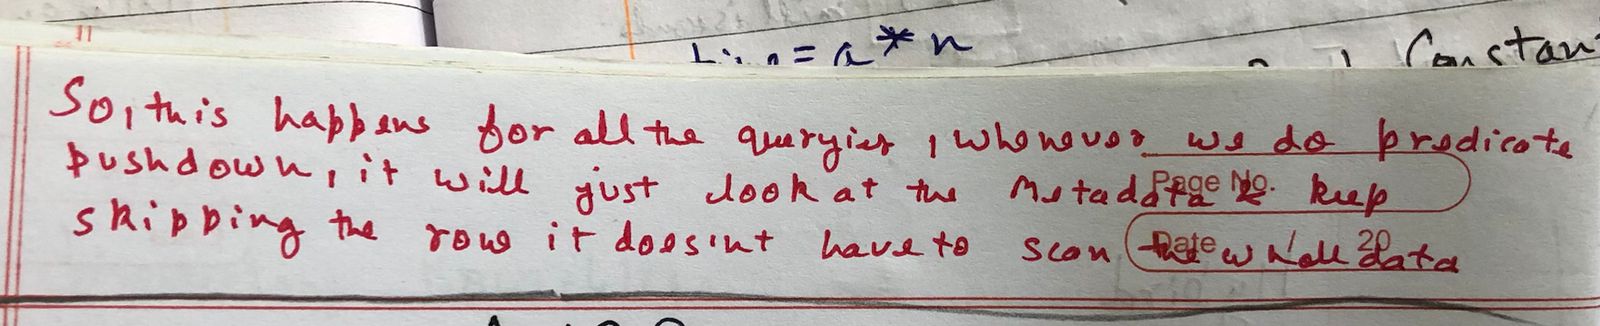 = a * n
Constan
So, this happens for all the queryies, whenever we do predicate
pushdown, it will just look at the Metadata & keep
Page No.
skipping the rows it doesint have to scan the whole data
Date / 20